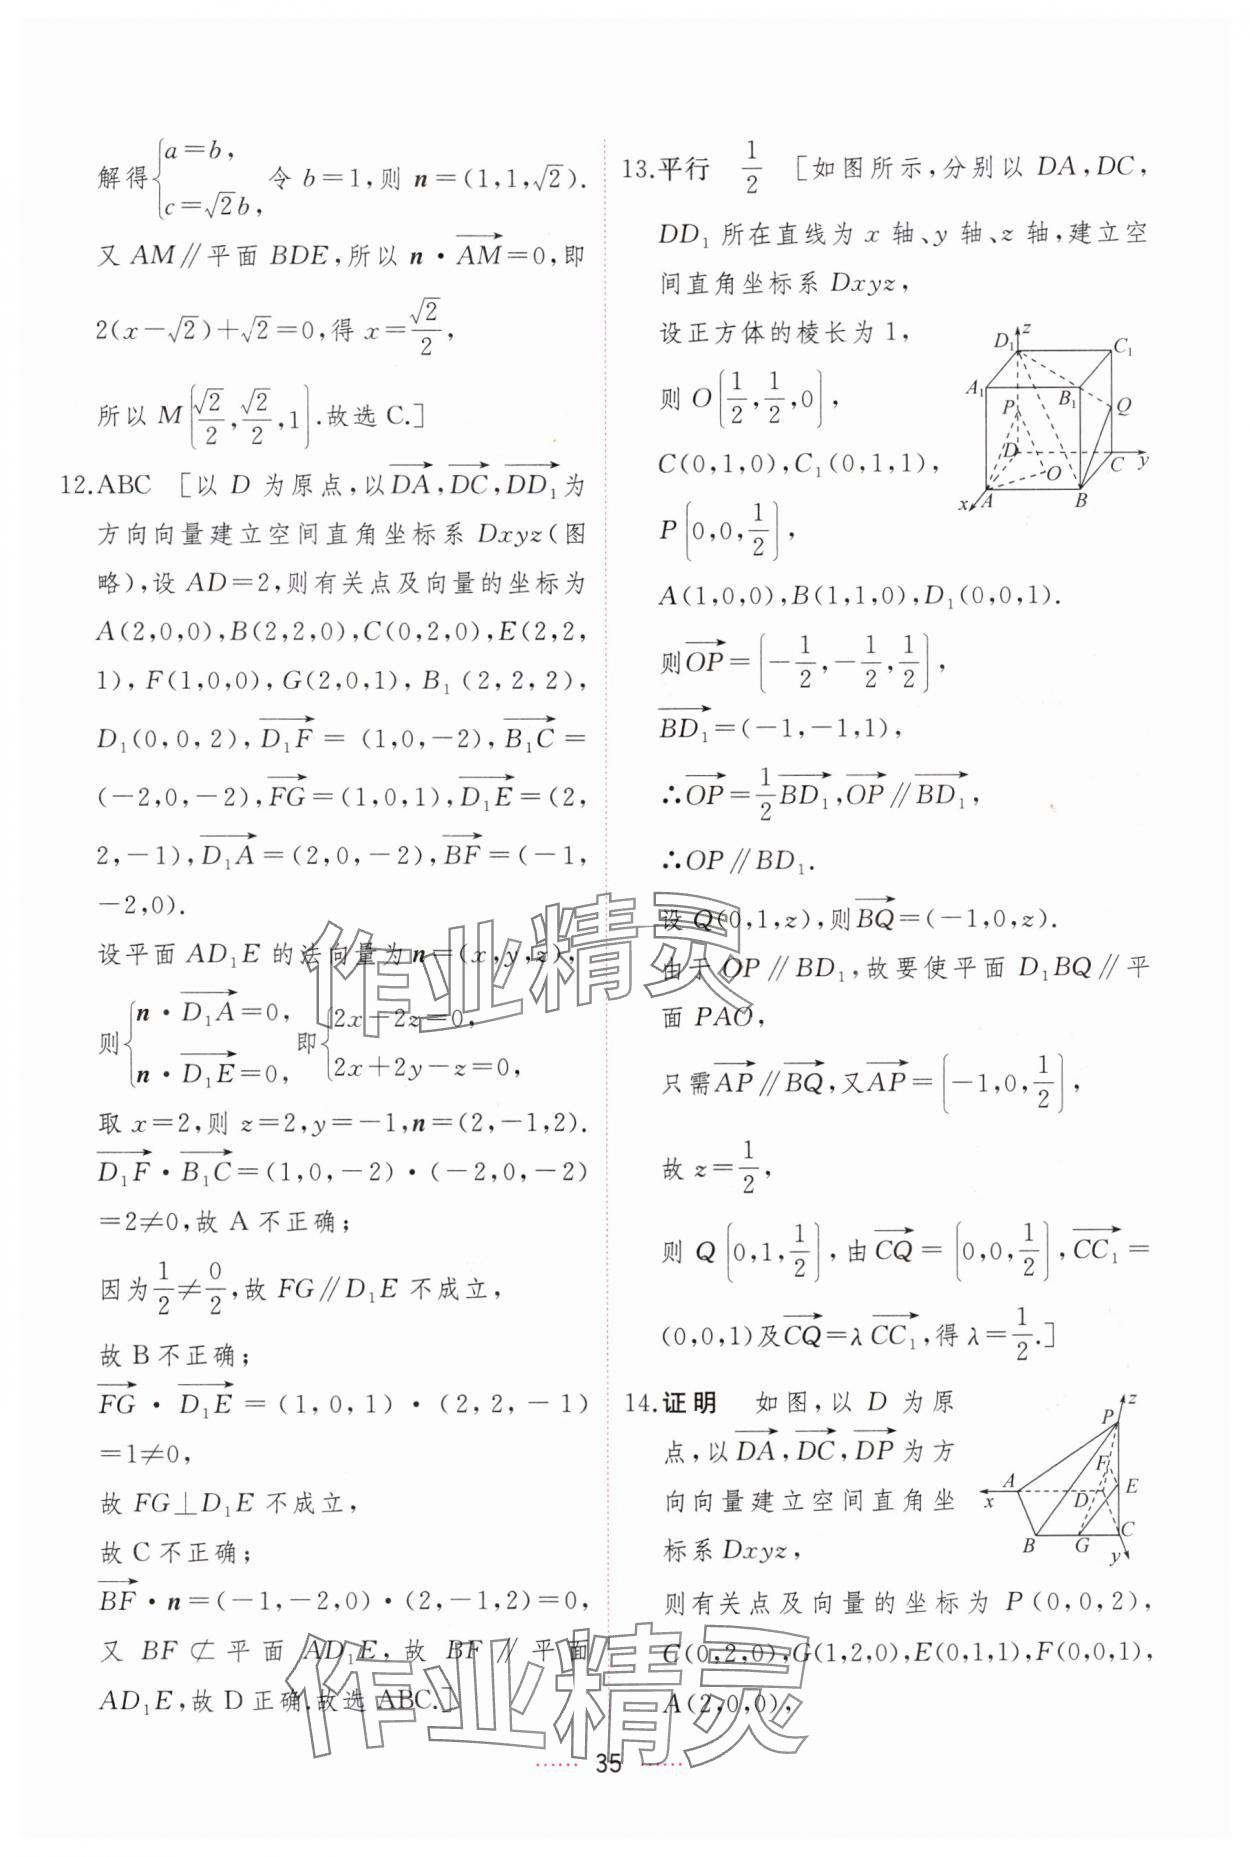 解得{a=b, c=√2b, 令 b=1,则 n=(1,1,√2).
又 AM∥平面 BDE,所以 n·AM→=0,即
2(x-√2)+√2=0,得 x=√2/2,
所以 M(√2/2,√2/2,1).故选 C.]
12.ABC [以 D 为原点,以DA→,DC→,DD₁→为
方向向量建立空间直角坐标系 Dxyz(图
略),设 AD=2,则有关点及向量的坐标为
A(2,0,0),B(2,2,0),C(0,2,0),E(2,2,
1),F(1,0,0),G(2,0,1),B₁(2,2,2),
D₁(0,0,2),D₁F→=(1,0,-2),B₁C→=
(-2,0,-2),FG→=(1,0,1),D₁E→=(2,
2,-1),D₁A→=(2,0,-2),BF→=(-1,
-2,0).
设平面 AD₁E 的法向量为 n=(x,y,z),
则{n·D₁A→=0, n·D₁E→=0, 即{2x-2z=0, 2x+2y-z=0,
取 x=2,则 z=2,y=-1,n=(2,-1,2).
D₁F→·B₁C→=(1,0,-2)·(-2,0,-2)
=2≠0,故 A 不正确;
因为1/2≠0/2,故 FG∥D₁E 不成立,
故 B 不正确;
FG→·D₁E→=(1,0,1)·(2,2,-1)
=1≠0,
故 FG⊥D₁E 不成立,
故 C 不正确;
BF→·n=(-1,-2,0)·(2,-1,2)=0,
又 BF⊄平面 AD₁E,故 BF∥平面
AD₁E,故 D 正确.故选 ABC.]
13.平行 1/2 [如图所示,分别以 DA,DC,
DD₁所在直线为 x 轴、y 轴、z 轴,建立空
间直角坐标系 Dxyz,
设正方体的棱长为 1,
则 O(1/2,1/2,0),
C(0,1,0),C₁(0,1,1),
P(0,0,1/2),
A(1,0,0),B(1,1,0),D₁(0,0,1).
D₁ z C₁
A₁ B₁
P Q
D C y
O
x A B
则OP→=(-1/2,-1/2,1/2),
BD₁→=(-1,-1,1),
∴OP→=1/2BD₁→,OP→∥BD₁→,
∴OP∥BD₁.
设 Q(0,1,z),则BQ→=(-1,0,z).
由于 OP∥BD₁,故要使平面 D₁BQ∥平
面 PAO,
只需AP→∥BQ→,又AP→=(-1,0,1/2),
故 z=1/2,
则 Q(0,1,1/2),由CQ→=(0,0,1/2),CC₁→=
(0,0,1)及CQ→=λCC₁→,得 λ=1/2.]
14.证明 如图,以 D 为原
点,以DA→,DC→,DP→为方
向向量建立空间直角坐
标系 Dxyz,
z
P
F
A E
x D
B G C
y
则有关点及向量的坐标为 P(0,0,2),
C(0,2,0),G(1,2,0),E(0,1,1),F(0,0,1),
A(2,0,0),
35
作业精灵
作业精灵